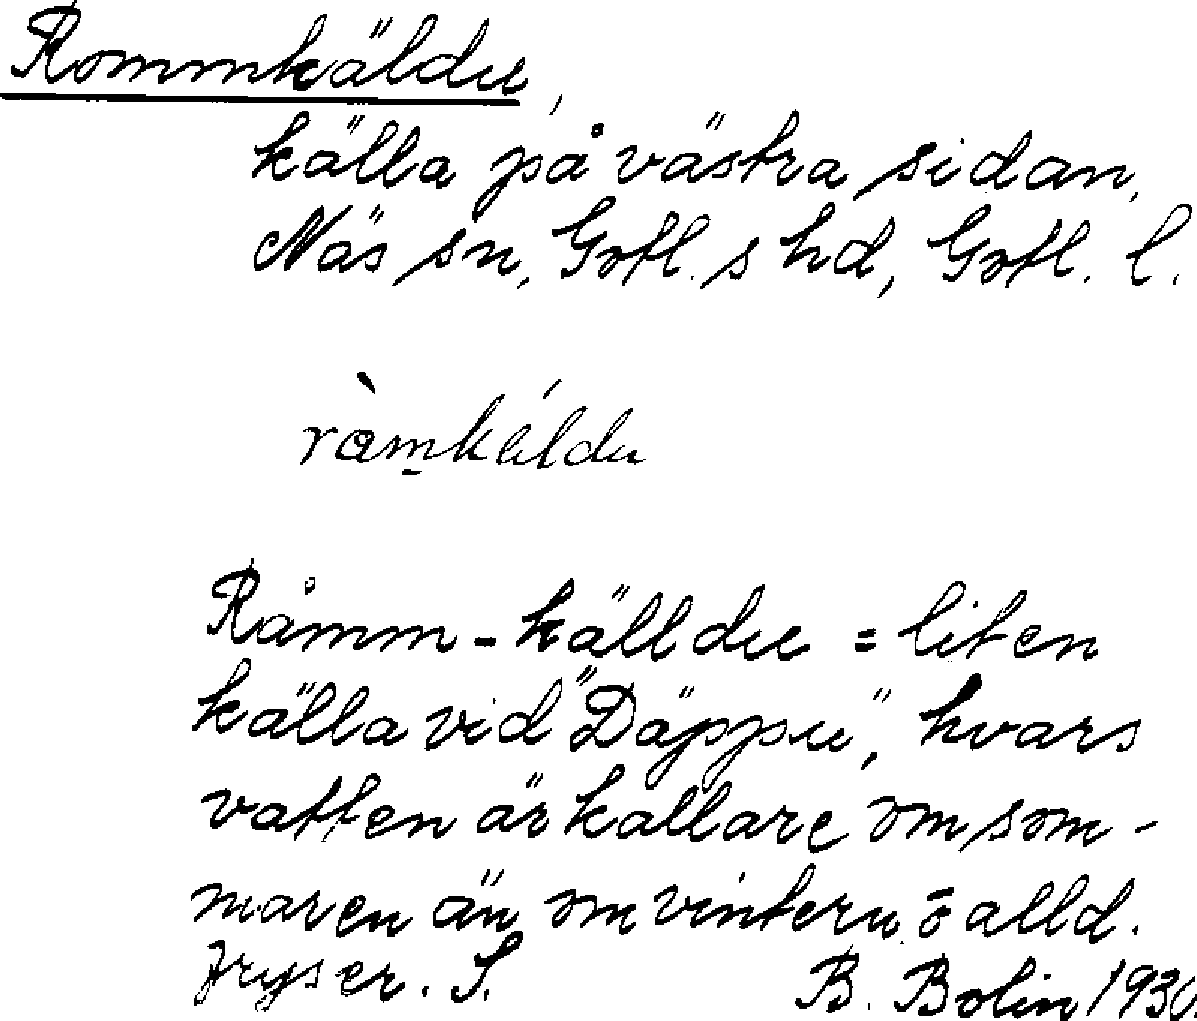 Rommkäldu,
källa på västra sidan,
Näs sn, Gotl. s hd, Gotl. l.
Råmm-källdu = liten
källa vid "Däppu", hvars
vatten är kallare om som-
maren än om vintern. o alld.
fryser. S. B. Bolin 1930.